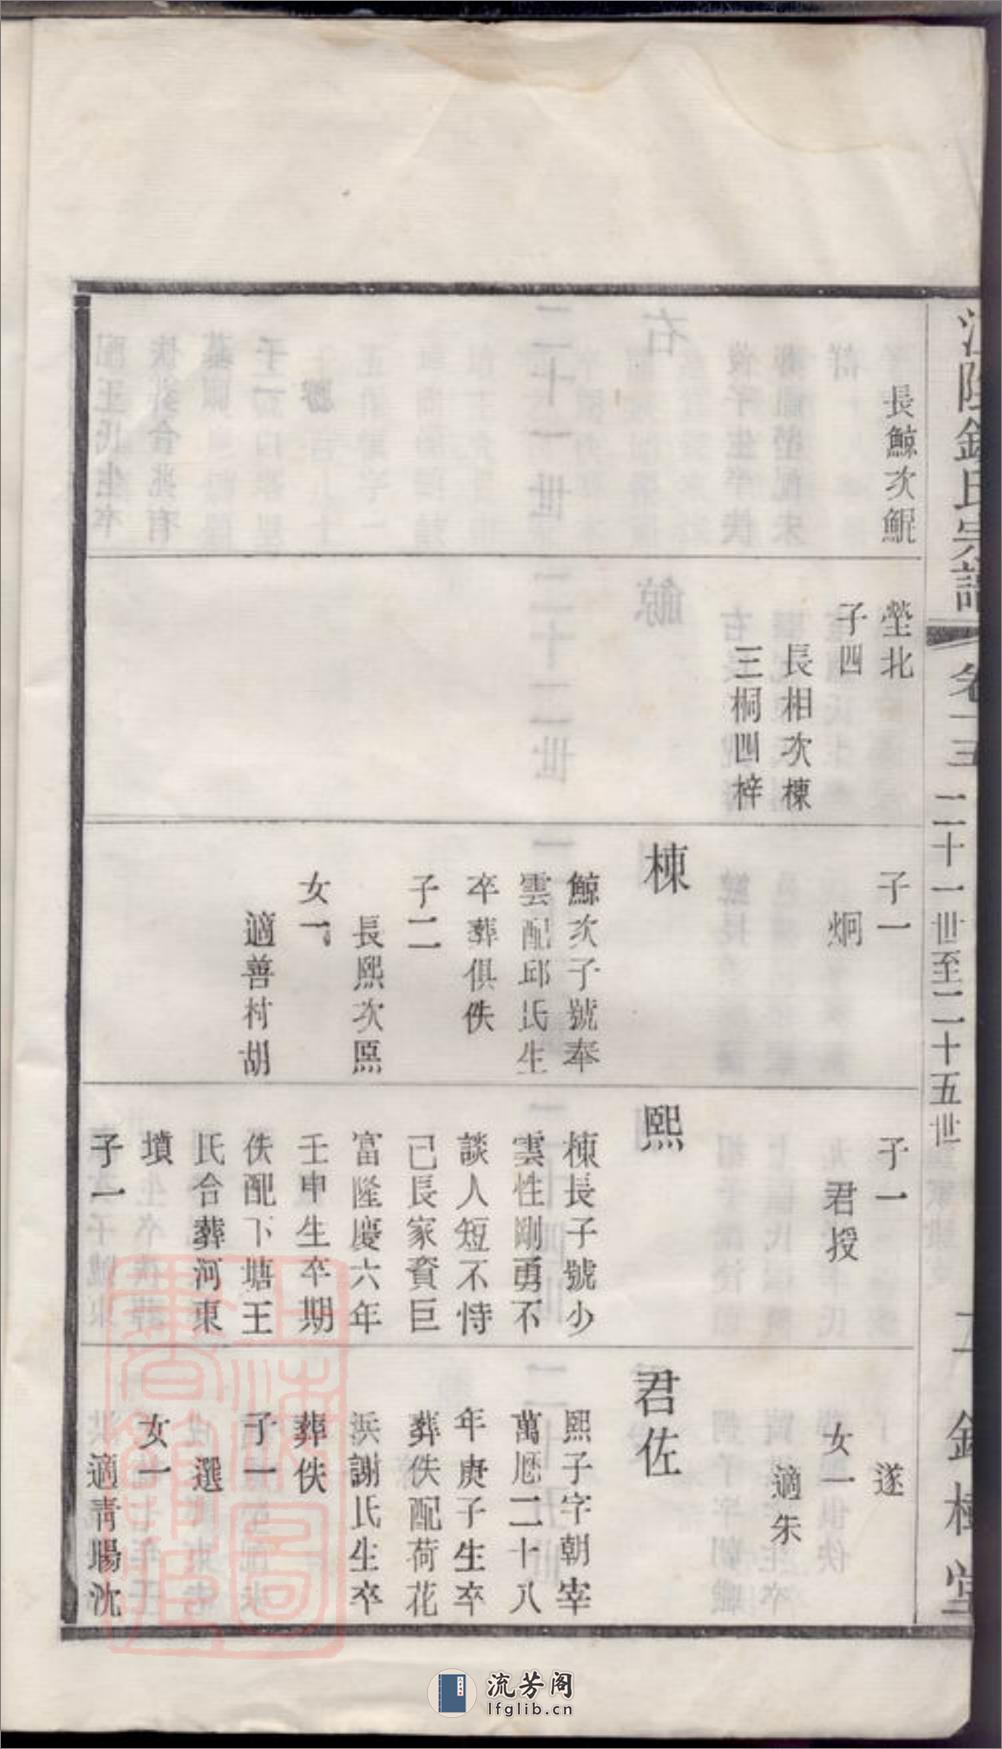 卷十三
二十一世至二十五世
長鯨次鯤
塋北
子四
長相次棟
三桐四梓
子一
炯
棟
鯨次子號奉
雲配邱氏生
卒葬俱佚
子二
長熙次㷩
女一
適善村胡
子一
君授
熙
棟長子號少
雲性剛勇不
談人短不恃
己長家資巨
富隆慶六年
壬申生卒期
佚配下塘王
氏合葬河東
墳
子一
遂
女一
適朱
君佐
熙子字朝宰
萬曆二十八
年庚子生卒
葬佚配荷花
浜謝氏生卒
葬佚
子一
選
女一
適青暘沈
流芳阁
lfglib.cn